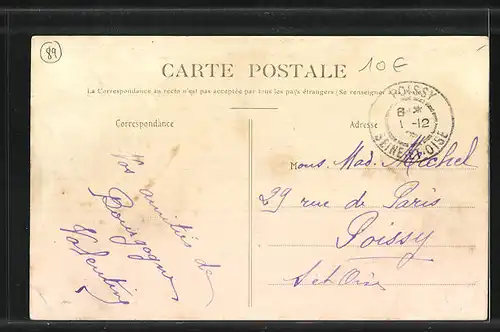 89
10€
CARTE POSTALE
La Correspondance au recto n'est pas acceptée par tous les pays étrangers (Se renseigner
Correspondance
Adresse
POISSY
8
1 -12
SEINE-ET-OISE
Mons. Mad. Michel
29 rue de Paris
Poissy
S et Oise
amitiés de
Bourgogne
Valentine